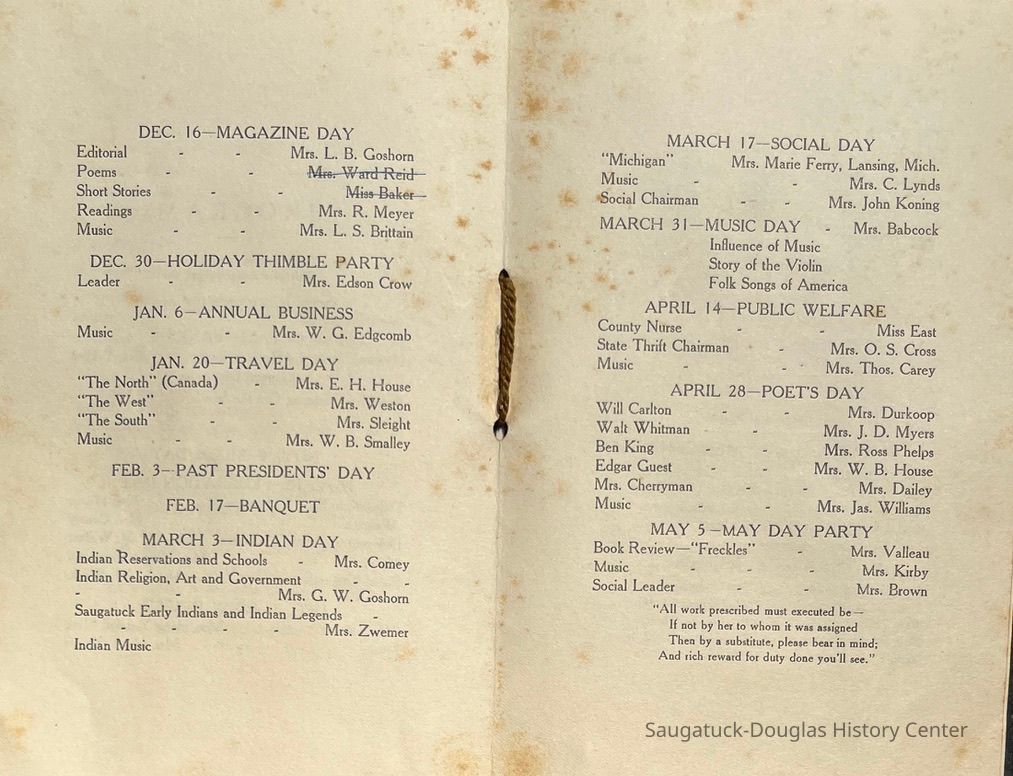 DEC. 16—MAGAZINE DAY
Editorial - - Mrs. L. B. Goshorn
Poems - - Mrs. Ward Reid
Short Stories - - Miss Baker
Readings - - Mrs. R. Meyer
Music - - Mrs. L. S. Brittain
DEC. 30—HOLIDAY THIMBLE PARTY
Leader - - Mrs. Edson Crow
JAN. 6—ANNUAL BUSINESS
Music - - Mrs. W. G. Edgcomb
JAN. 20—TRAVEL DAY
"The North" (Canada) - Mrs. E. H. House
"The West" - - Mrs. Weston
"The South" - - Mrs. Sleight
Music - - Mrs. W. B. Smalley
FEB. 3—PAST PRESIDENTS' DAY
FEB. 17—BANQUET
MARCH 3—INDIAN DAY
Indian Reservations and Schools - Mrs. Comey
Indian Religion, Art and Government - -
- - Mrs. G. W. Goshorn
Saugatuck Early Indians and Indian Legends -
- - - - Mrs. Zwemer
Indian Music
MARCH 17—SOCIAL DAY
"Michigan" Mrs. Marie Ferry, Lansing, Mich.
Music - - Mrs. C. Lynds
Social Chairman - - Mrs. John Koning
MARCH 31—MUSIC DAY - Mrs. Babcock
Influence of Music
Story of the Violin
Folk Songs of America
APRIL 14—PUBLIC WELFARE
County Nurse - - Miss East
State Thrift Chairman - Mrs. O. S. Cross
Music - - Mrs. Thos. Carey
APRIL 28—POET'S DAY
Will Carlton - - Mrs. Durkoop
Walt Whitman - - Mrs. J. D. Myers
Ben King - - Mrs. Ross Phelps
Edgar Guest - - Mrs. W. B. House
Mrs. Cherryman - - Mrs. Dailey
Music - - Mrs. Jas. Williams
MAY 5—MAY DAY PARTY
Book Review—"Freckles" - Mrs. Valleau
Music - - Mrs. Kirby
Social Leader - - Mrs. Brown
"All work prescribed must executed be—
If not by her to whom it was assigned
Then by a substitute, please bear in mind;
And rich reward for duty done you'll see."
Saugatuck-Douglas History Center